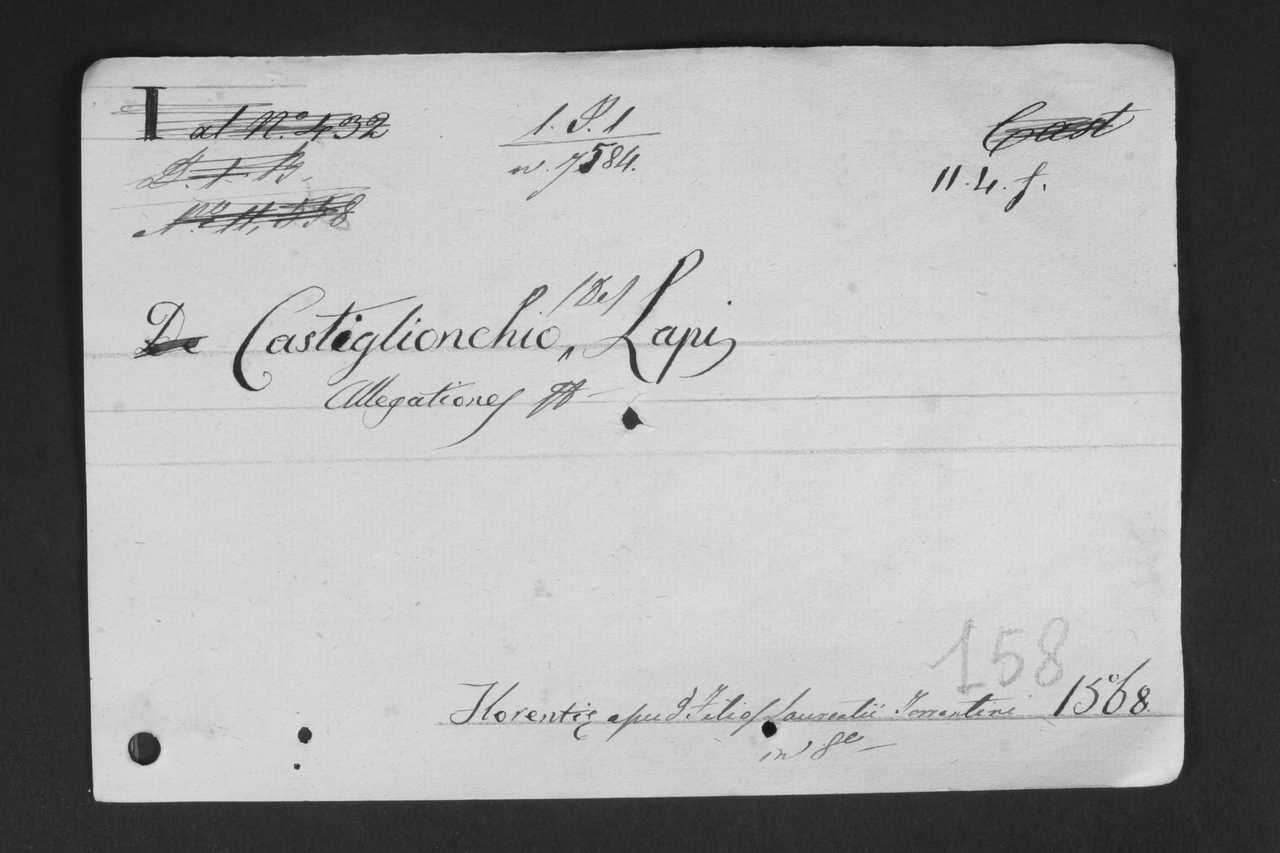 I al N.º 432
D. 1. B.
N.º 11,558
1. P. 1
n. 7584.
Cast
11. 4. f.
De Castiglionchio, (De) Lapi,
Allegationes
158
Florentię apud Filios Laurentii Torrentini 1568.
in 8º